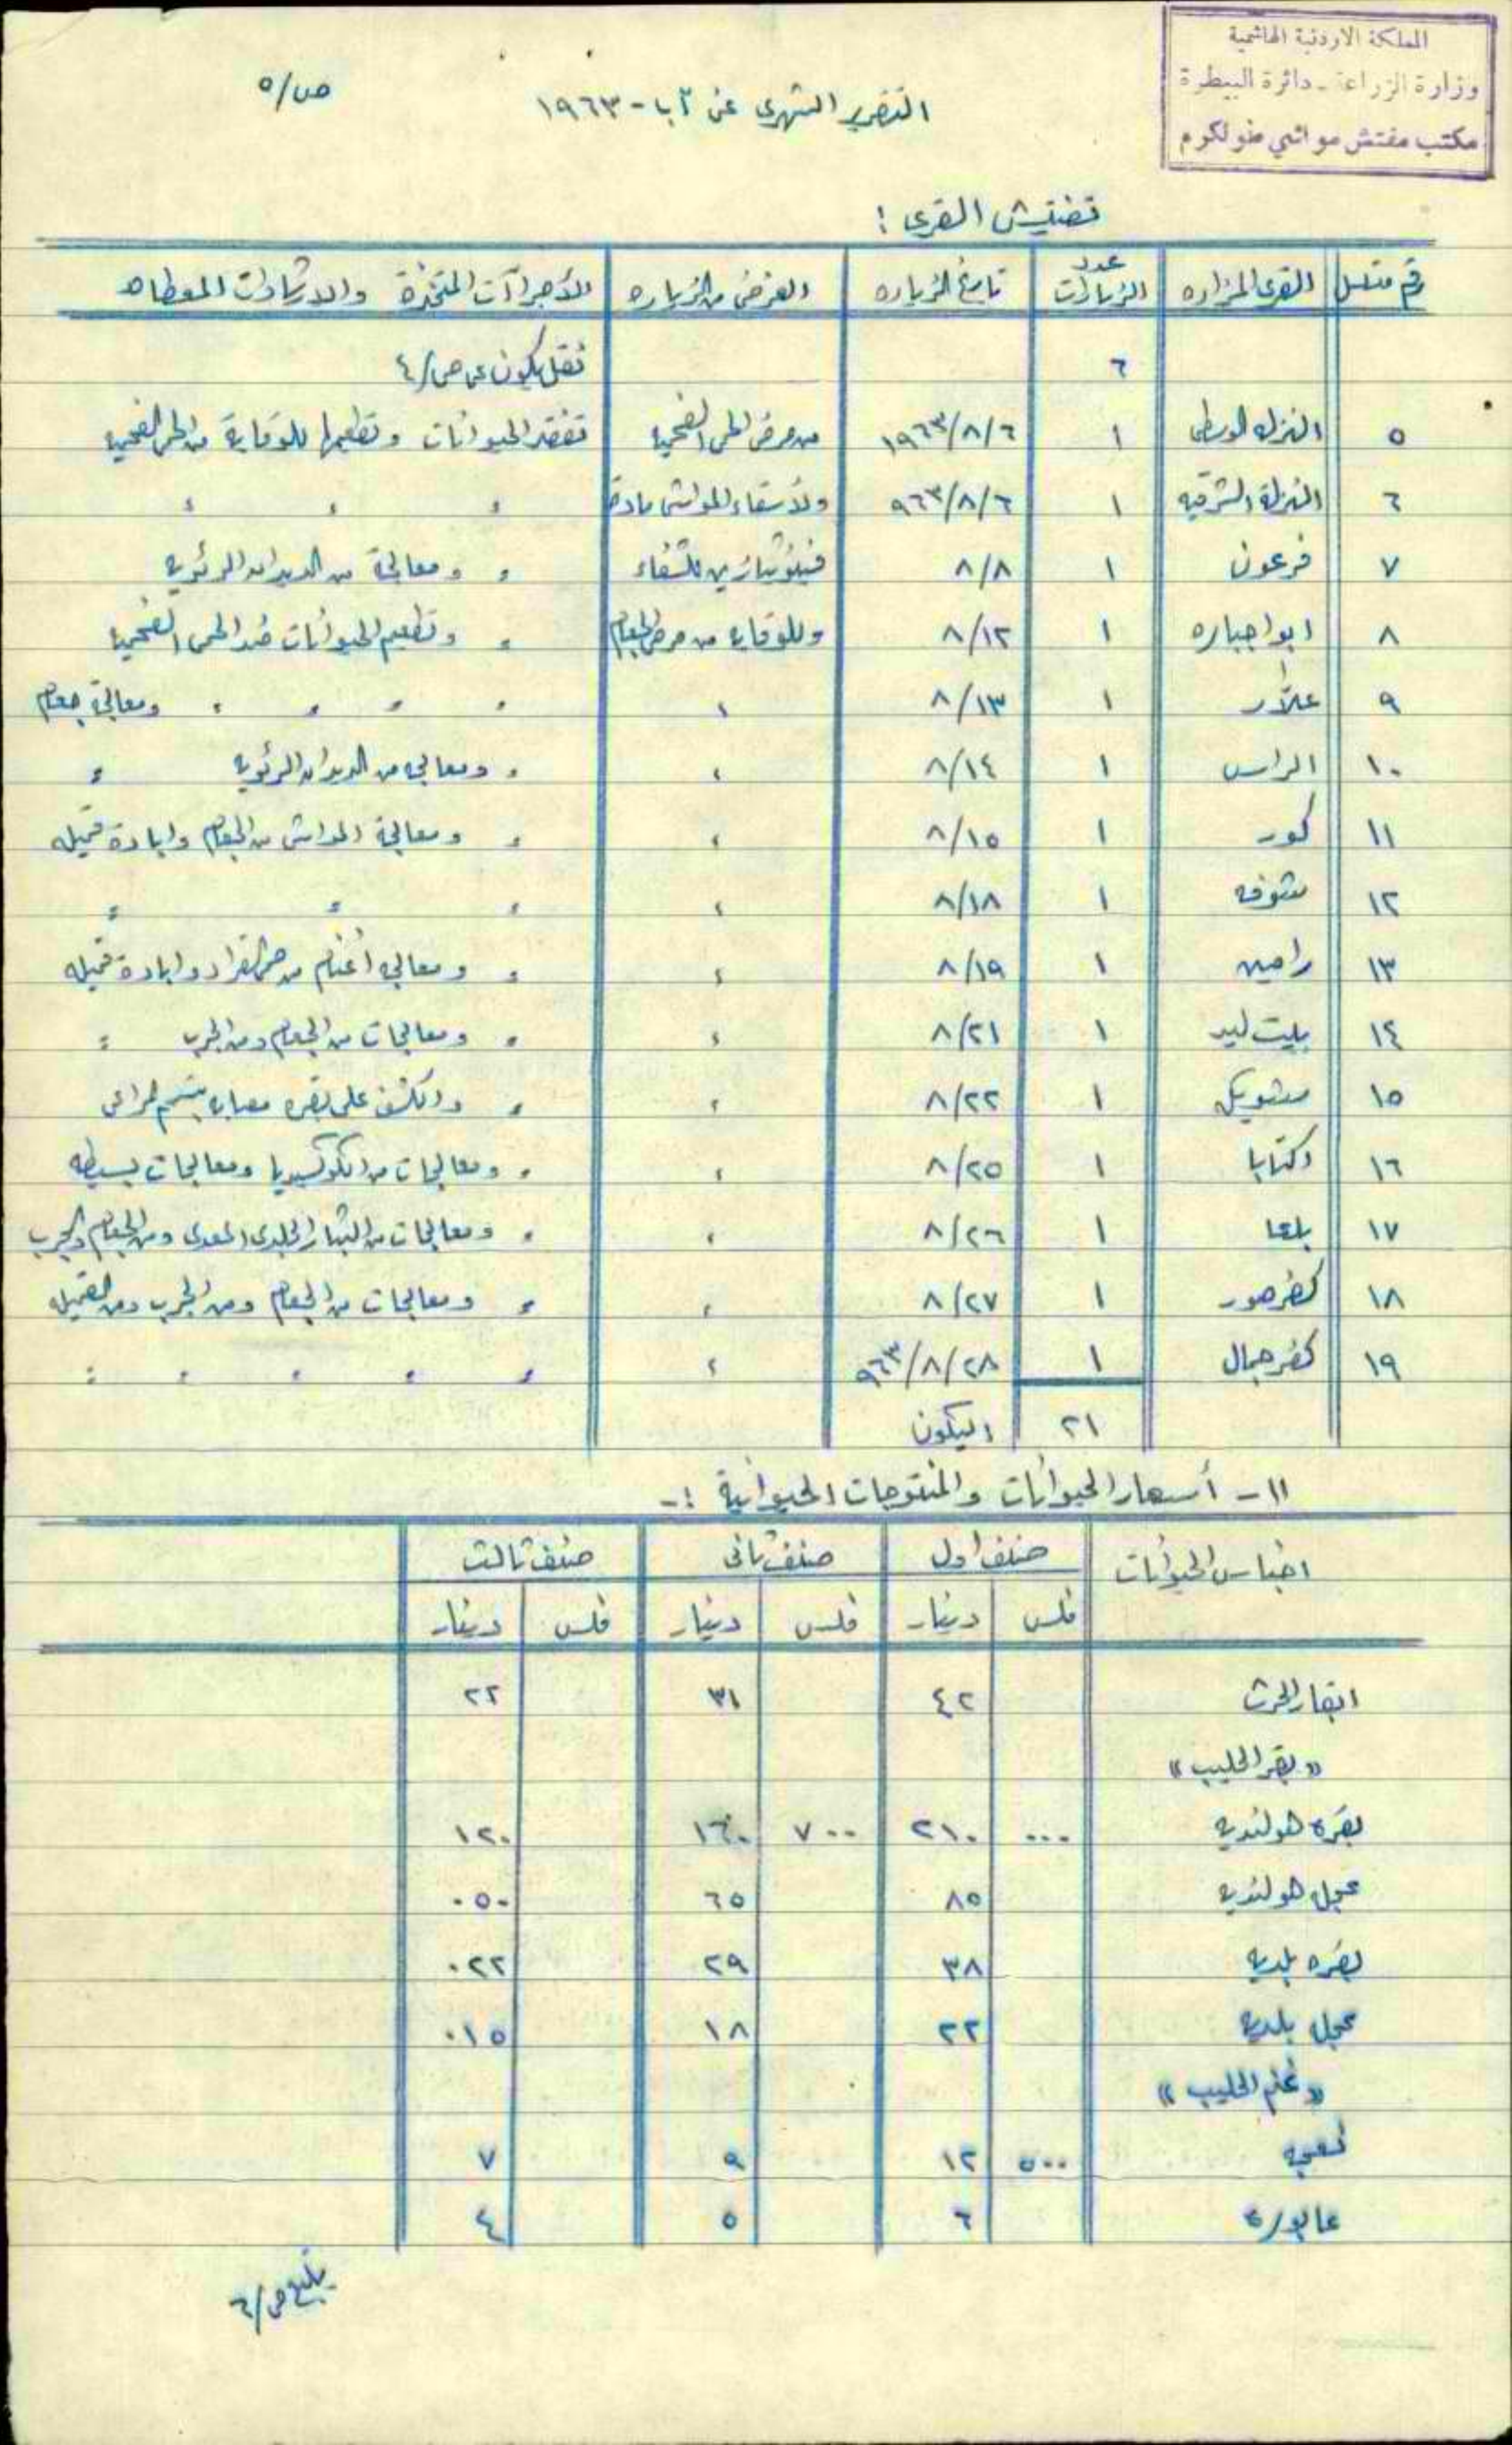 المملكة الاردنية الهاشمية
وزارة الزراعة - دائرة البيطرة
مكتب مفتش مواشي طولكرم
التقرير الشهري عن آب - ١٩٦٣
ص/٥
تفتيش القرى :
رقم متسلسل | القرى المزاره | عدد الزيارات | تاريخ الزياره | الغرض من الزياره | الأجراآت المتخذة والارشادات المعطاه
٦ | نقل يكون عن ص/٤
٥ | النزله الوسطى | ١ | ١٩٦٣/٨/٦ | من مرض الحمى الفحميه | تفقد الحيوانات وتطعيمها للوقاية من الحمى الفحميه
٦ | النزلة الشرقيه | ١ | ٩٦٣/٨/٦ | ولأسقاء المواشي مادة | " " " "
٧ | فرعون | ١ | ٨/٨ | للشفاء | " ومعالجة من الديدان الرئويه
٨ | ابو اجباره | ١ | ٨/١٢ | وللوقايه من مرض الجعام | " وتطعيم الحيوانات ضد الحمى الفحميه
٩ | علار | ١ | ٨/١٣ | " | " " " " ومعالجة جعام
١٠ | الراس | ١ | ٨/١٤ | " | " ومعالجه من الديدان الرئويه "
١١ | كور | ١ | ٨/١٥ | " | " ومعالجة المواشي من الجعام وابادة قميله
١٢ | شوفه | ١ | ٨/١٨ | " | " " "
١٣ | رامين | ١ | ٨/١٩ | " | " ومعالجه اغنام من حمى القراد وابادة قميله
١٤ | بيت ليد | ١ | ٨/٢١ | " | " ومعالجات من الجعام ومن الجرب "
١٥ | شويكه | ١ | ٨/٢٢ | " | " والكشف على بقره مصابه بتسمم
١٦ | اكتابا | ١ | ٨/٢٥ | " | " ومعالجات من الكوكسيديا ومعالجات بسيطه
١٧ | بلعا | ١ | ٨/٢٦ | " | " ومعالجات من البثار الجلدي المعدي ومن الجعام والجرب
١٨ | كفر صور | ١ | ٨/٢٧ | " | " ومعالجات من الجعام ومن الجرب ومن القميله
١٩ | كفر جمال | ١ | ٩٦٣/٨/٢٨ | " | " " " " "
٢١ | اليكون
١١ - أسعار الحيوانات والمنتوجات الحيوانية :-
اجناس الحيوانات | صنف اول | صنف ثاني | صنف ثالث
فلس | دينار | فلس | دينار | فلس | دينار
ابقار الحرث | ٤٢ | ٣١ | ٢٢
« بقر الحليب »
بقره هولنديه | ٠٠٠ | ٢١٠ | ٧٠٠ | ١٦٠ | ١٢٠
عجله هولنديه | ٨٥ | ٦٥ | ٠٥٠
بقره بلديه | ٣٨ | ٢٩ | ٠٢٢
عجله بلديه | ٢٢ | ١٨ | ٠١٥
« غنم الحليب »
نعجه | ٥٠٠ | ١٢ | ٩ | ٧
عابوره | ٦ | ٥ | ٤
يتبع ص/٦